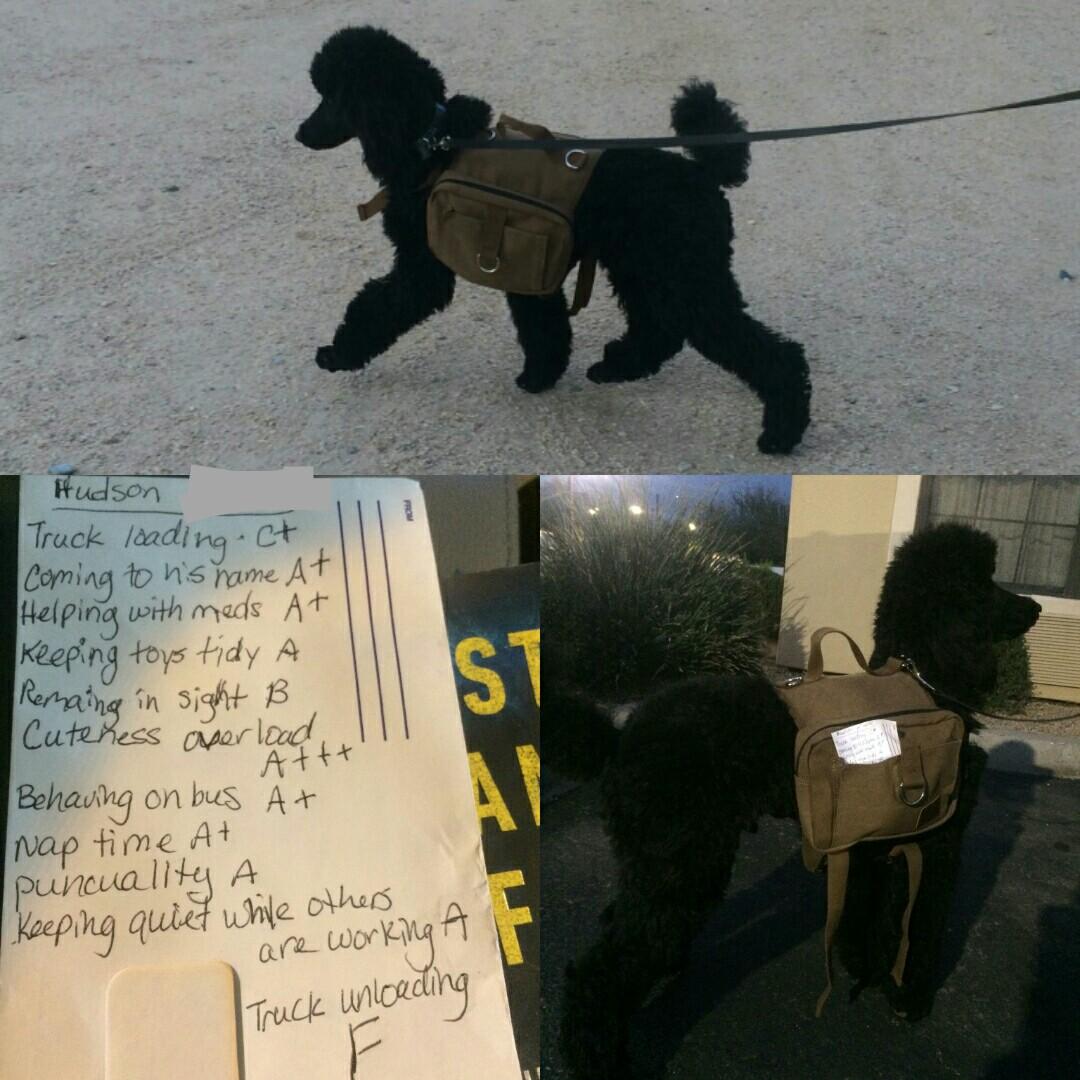 Hudson
Truck loading. C+
Coming to his name A+
Helping with meds A+
Keeping toys tidy A
Remaing in sight B
Cuteness overload
A+++
Behaving on bus A+
Nap time A+
puncuality A
Keeping quiet while others
are working A
Truck unloading
F
FROM
ST
AN
F